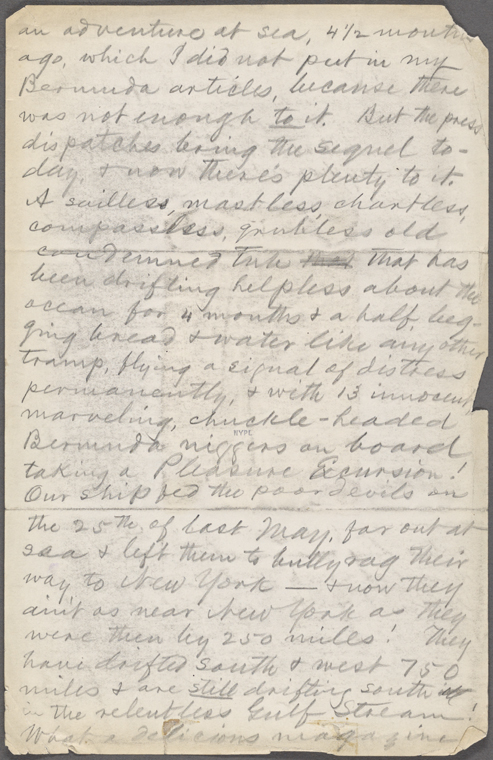 an adventure at sea, 4 1/2 months
ago, which I did not put in my
Bermuda articles, because there
was not enough to it. But the press
dispatches bring the sequel to-
day, & now there's plenty to it.
A sailless, mastless, chartless,
compassless, grubless old
condemned tub that has
been drifting helpless about the
ocean for 4 months & a half, beg-
ging bread & water like any other
tramp, flying a signal of distress
permanently, & with 13 innocent
marveling, chuckle-headed
Bermuda niggers on board
NYPL
taking a Pleasure Excursion!
Our ship fed the poor devils on
the 25th of last May, far out at
sea & left them to bullyrag their
way to New York — & now they
ain't as near New York as they
were then by 250 miles! They
have drifted south & west 750
miles & are still drifting south
in the relentless Gulf Stream!
What a delicious magazine